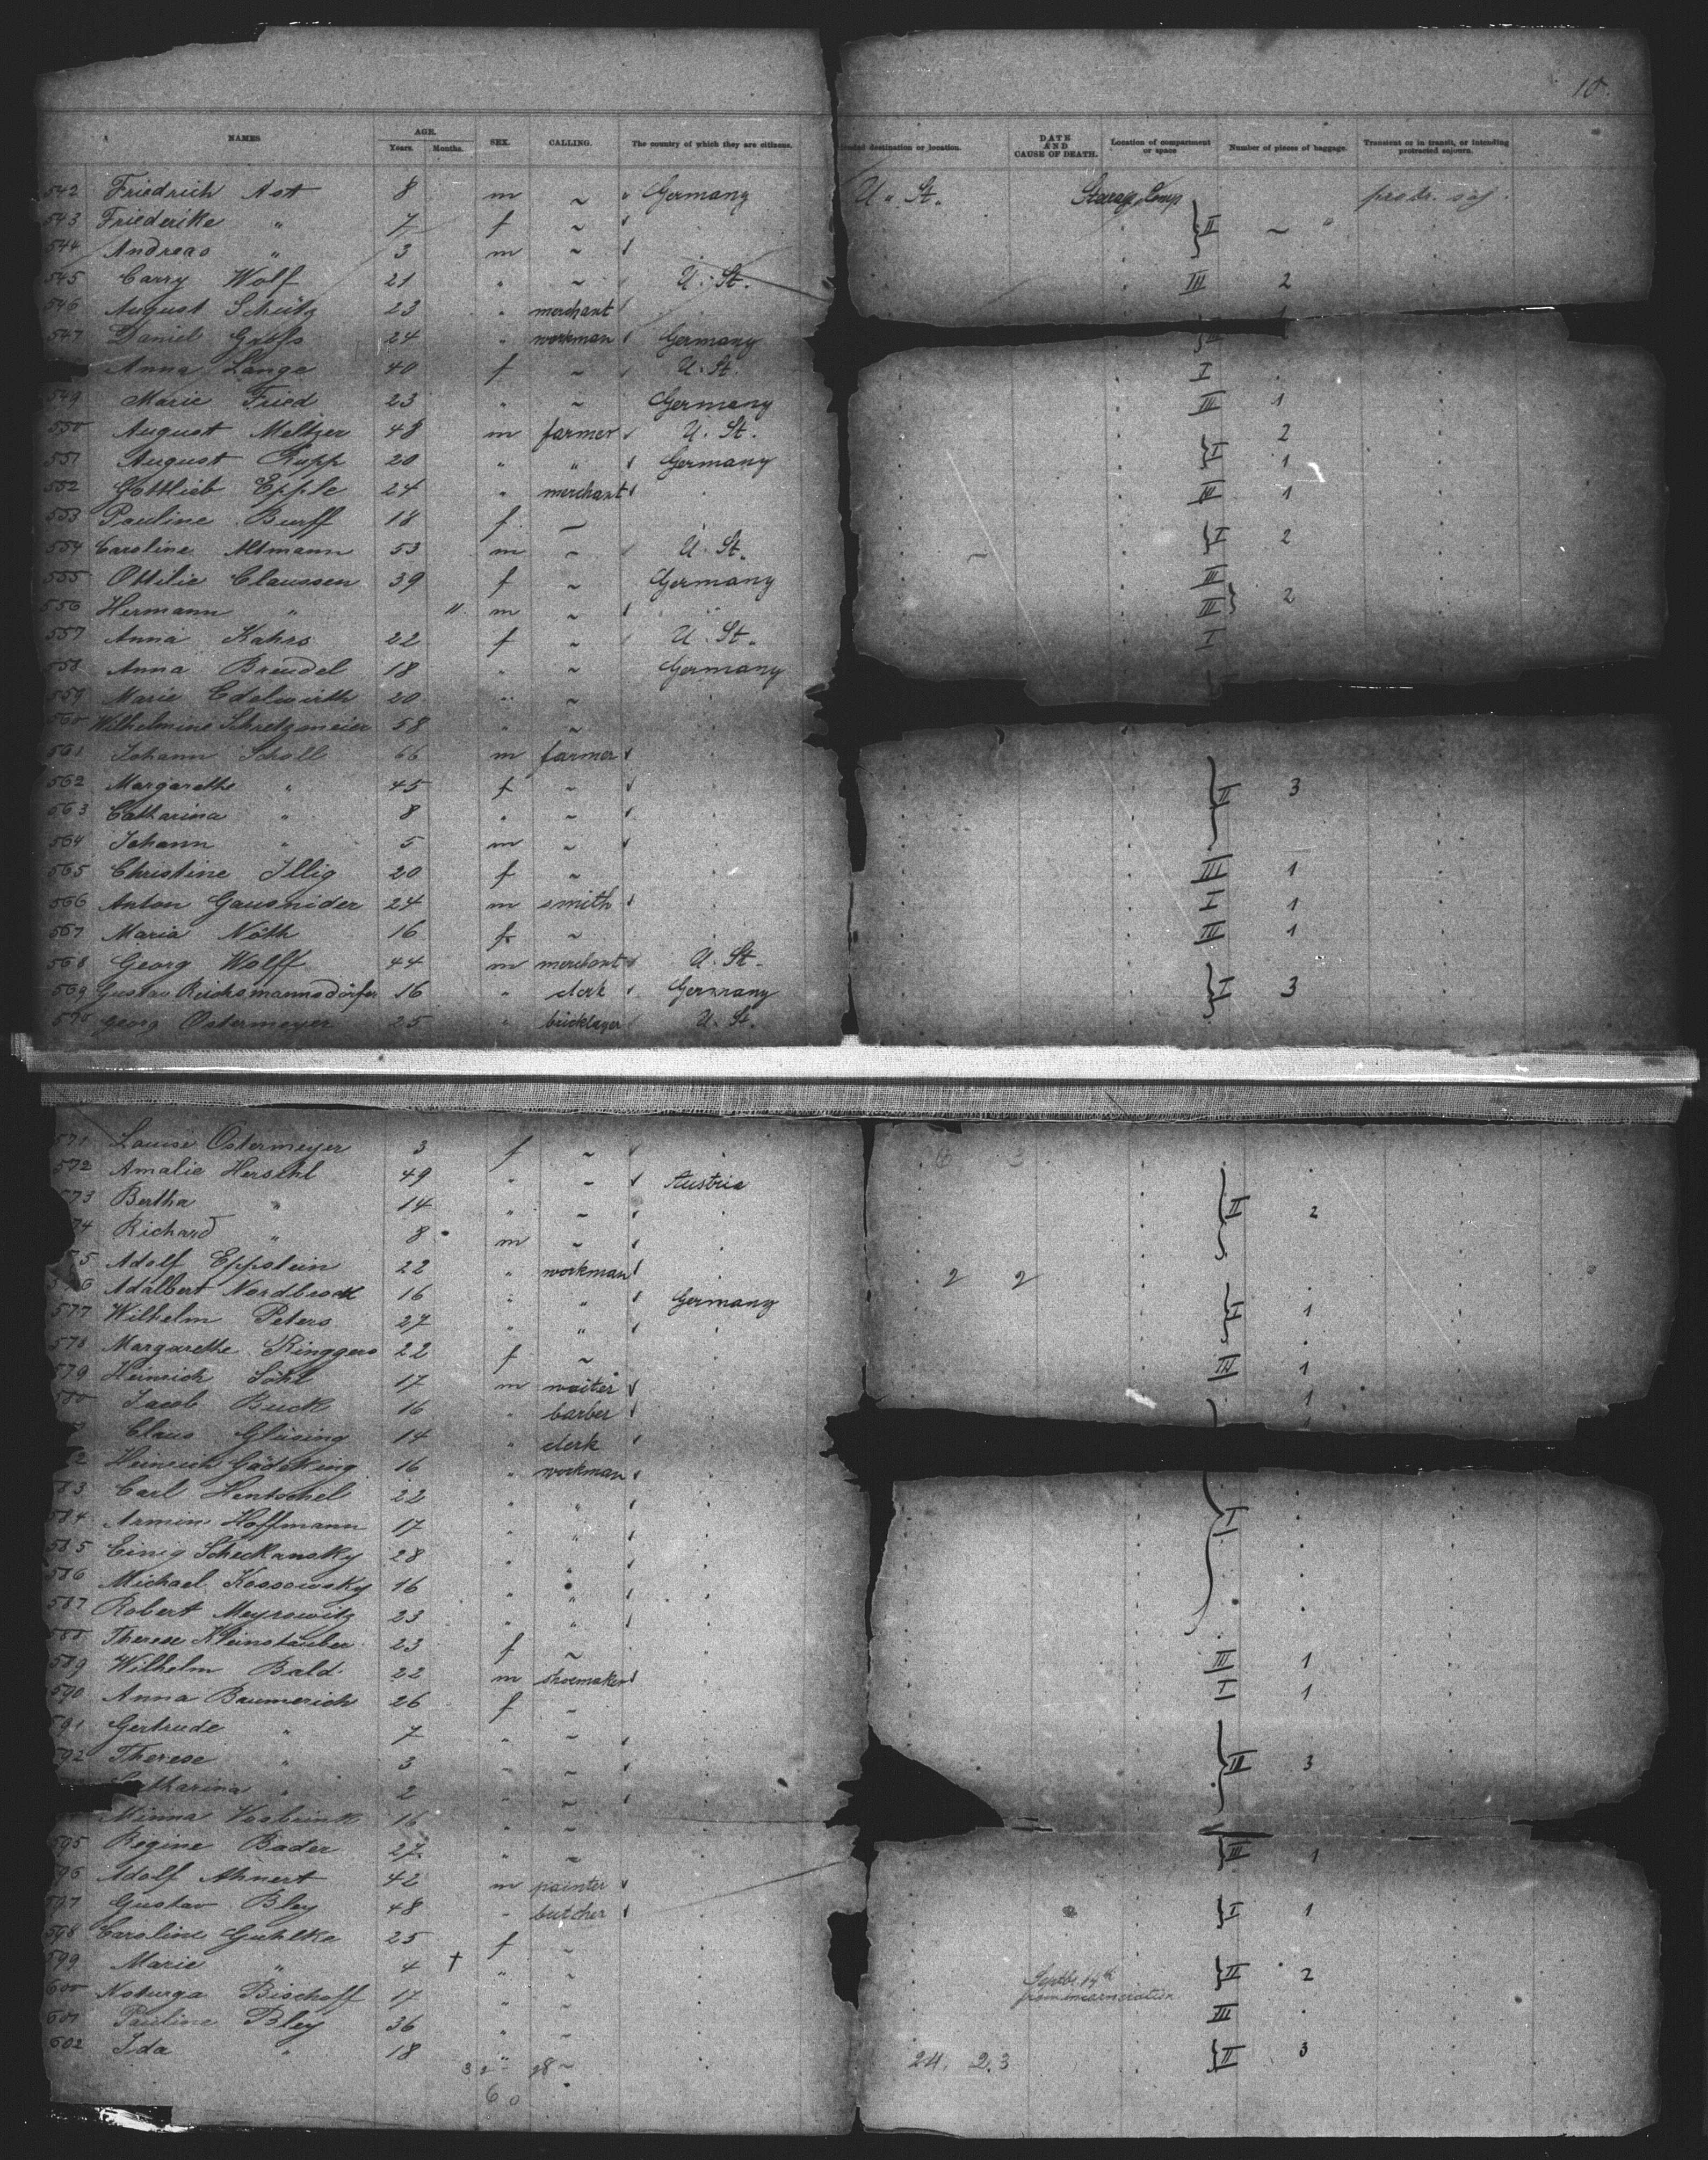 10.
NAMES AGE. Years. Months. SEX. CALLING. The country of which they are citizens. destination or location. DATE AND CAUSE OF DEATH. Location of compartment or space Number of pieces of baggage. Transient or in transit, or intending protracted sojourn.
542 Friedrich Ast 8 m ~ Germany U. St. Steerage Comp protr. soj.
543 Friederike " 7 f ~ II ~ "
544 Andreas " 3 m ~
545 Carry Wolf 21 " ~ U. St. III 2
546 August Schütz 23 " merchant
547 Daniel 24 " workman Germany
Anna Lange 40 f ~ U. St. I
549 Marie Fried 23 " ~ Germany III 1
550 August Meltzer 48 m farmer U. St. 2
551 August Rupp 20 " " Germany I 1
552 Gottlieb Epple 24 " merchant 1
553 Pauline Burff 18 f ~
554 Caroline Altmann 53 m ~ U. St. I 2
555 Ottilie Claussen 39 f ~ Germany III
556 Hermann " 11 m ~ " III 2
557 Anna Kahrs 22 f ~ U. St. I
558 Anna Breudel 18 " ~ Germany
559 Marie Edelwirth 20 " ~
560 Wilhelmine Schretzmeier 58 " ~
561 Johann Scholl 66 m farmer
562 Margarethe " 45 f ~ II 3
563 Catharina " 8 " ~
564 Johann " 5 m ~
565 Christine Illig 20 f ~ III 1
566 Anton Gausnider 24 m smith I 1
567 Maria Nöth 16 f ~ III 1
568 Georg Wolff 44 m merchant U. St.
569 Gustav Reichsmannsdörfer 16 " clerk Germany I 3
570 Georg Ostermeyer 25 " bricklayer U. St.
571 Louise Ostermeyer 3 f ~
572 Amalie Herschl 49 " ~ Austria
573 Bertha " 14 " ~ II 2
74 Richard " 8 m ~
5 Adolf Eppstein 22 " workman 2 2
6 Adalbert Nordbrock 16 " " Germany
577 Wilhelm Peters 27 " " I 1
578 Margarethe Ringgers 22 f ~
579 Heinrich Söhl 17 m waiter III 1
580 Jacob Buck 16 " barber 1
Claus Glüsing 14 " clerk
2 Heinrich Gädeking 16 " workman
83 Carl Hentschel 22 " "
584 Armin Hoffmann 17 " " I
585 Einig Scheckansky 28 " "
586 Michael Kossowsky 16 " "
587 Robert Meyrowitz 23 " "
588 Therese Kleinstäuber 23 f ~
589 Wilhelm Bald 22 m shoemaker III 1
590 Anna Baumerich 26 f ~ I 1
591 Gertrude " 7 " ~
592 Therese " 3 " ~ 3
Catharina " 2 " ~
Minna Vosbrink 16 " ~
595 Regine Bader 27 " ~ III 1
596 Adolf Ahnert 42 m painter
597 Gustav Bley 48 " butcher I 1
598 Caroline Guhlke 25 f ~
599 Marie " 4 † " ~ Septbr. 19th II 2
600 Noturga Bischoff 17 " ~ III
601 Pauline Bley 36 " ~
602 Ida " 18 " ~ 24. 23 II 3
32 28
60